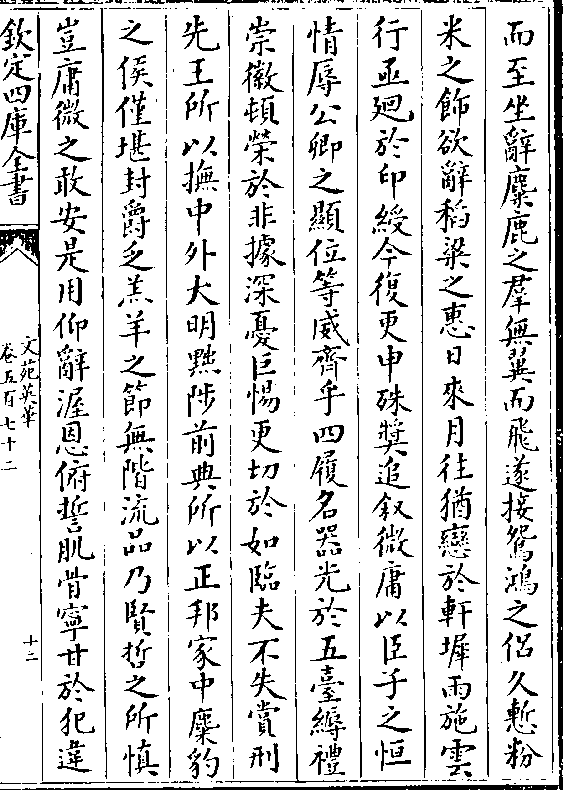 而至坐辭麋鹿之羣無翼而飛遂接鴛鴻之侣久慙粉
米之飾欲辭稻粱之惠日來月往猶戀於軒墀雨施雲
行亟廻於印綬今復更申殊奬追叙微庸以臣子之恒
情辱公卿之顯位等威齊乎四履名器光於五臺縟禮
崇徽頓榮於非據深憂巨惕更切於如臨夫不失賞刑
先王所以撫中外大明黜陟前典所以正邦家中麋豹
之侯僅堪封爵乏羔羊之節無階流品乃賢哲之所慎
豈庸微之敢安是用仰辭渥恩俯誓肌骨寧甘於犯違
欽定四庫全書
文苑英華
卷五百七十二
十二